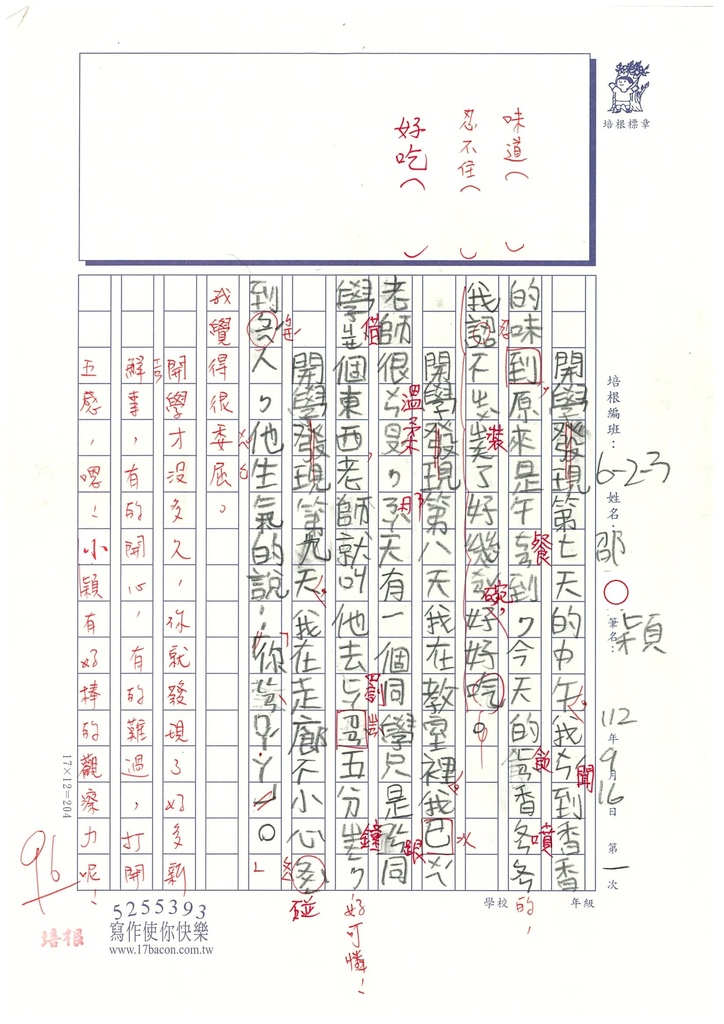 1
培根標章
味道（ ）
忍不住（ ）
好吃（ ）
培根編班：6-2-3 姓名：邵○ 筆名：穎
112年9月16日 第一次
學校 年級
開學發現第七天的中午我ㄣ到香香
聞
的味到原來是午ㄘㄢ到，今天的ㄈㄢ香ㄆㄣㄆㄣ
餐
飯
噴
的，
我認不ㄓㄨ
忍
裝
了好幾
碗，
好好吃。
開學發現第八天我在教室裡我已ㄨ
火
老師很ㄨㄣ
溫柔
，
因
天有一個同學只是ㄍㄣ同
跟
學ㄐㄧㄝ個東西，老師就叫他去ㄈㄚ
借
罰
五分ㄓㄨㄥ，
鐘
好可憐！
開學發現第九天，我在走廊不小心ㄆㄥ
碰
到
人，他生氣的說：「你
ㄚ。」
我覺得很委屈。
開學才沒多久，你就發現了好多新
鮮事，有的開心，有的難過，打開
五感，嘿！小穎有好棒的觀察力呢！
96
17×12=204
5255393
培根
寫作使你快樂
www.17bacon.com.tw